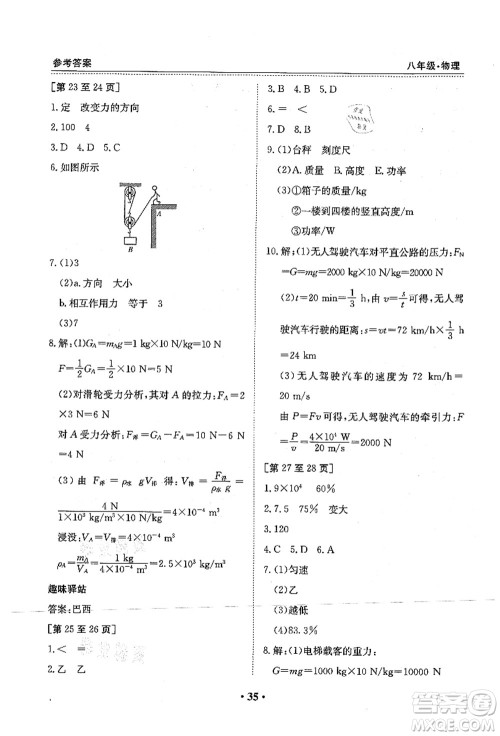 参考答案
八年级·物理
[第 23 至 24 页]
1.定 改变力的方向
2.100 4
3.D 4.D 5.C
6.如图所示
B
A
7.(1)3
(2)a.方向 大小
b.相互作用力 等于 3
(3)7
8.解:(1)G_A=m_A g=1 kg×10 N/kg=10 N
F=1/2 G_A=1/2×10 N=5 N
(2)对滑轮受力分析,其对 A 的拉力:F_A=2F=2×3 N=6 N
对 A 受力分析:F_浮=G_A-F_A=10 N-6 N=4 N
(3)由 F_浮=ρ_水 gV_排 得:V_排=F_浮/(ρ_水 g)=
4 N/(1×10³ kg/m³×10 N/kg)=4×10⁻⁴ m³
浸没:V_A=V_排=4×10⁻⁴ m³
ρ_A=m_A/V_A=1 kg/(4×10⁻⁴ m³)=2.5×10³ kg/m³
趣味驿站
答案:巴西
[第 25 至 26 页]
1.< =
2.乙 乙
3.B 4.B 5.D
6.= <
7.D 8.D
9.(1)台秤 刻度尺
(2)A.质量 D.功率
(3)①箱子的质量/kg
②一楼到四楼的竖直高度/m
10.解:(1)无人驾驶汽车对平直公路的压力:F_N
=G=mg=2000 kg×10 N/kg=20000 N
(2)t=20 min=1/3 h,由 v=s/t 可得,无人驾
驶汽车行驶的距离:s=vt=72 km/h×1/3 h
=24 km
(3)无人驾驶汽车的速度为 72 km/h=
20 m/s
由 P=Fv 可得,无人驾驶汽车的牵引力:F
=P/v=4×10⁴ W/20 m/s=2000 N
[第 27 至 28 页]
1.9×10⁴ 60%
2.7.5 75% 变大
3.120
4.C 5.D 6.D
7.(1)匀速
(2)乙
(3)越低
(4)83.3%
8.解:(1)电梯载客的重力:
G=mg=1000 kg×10 N/kg=10000 N
·35·